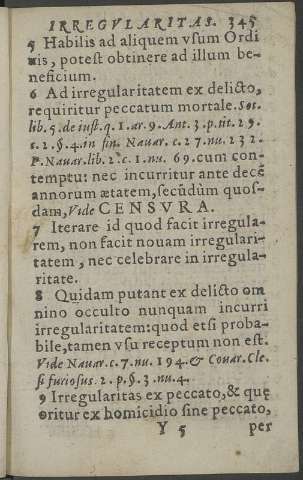 IRREGVLARITAS. 345
5 Habilis ad aliquem vsum Ordi
nis, potest obtinere ad illum be-
neficium.
6 Ad irregularitatem ex delicto,
requiritur peccatum mortale. Sot.
lib. 5. de iust. q. 1. ar. 9. Ant. 3. p. tit. 29.
c. 2. §. 4. in fin. Nauar. c. 27. nu. 232.
P. Nauar. lib. 2. c. 1. nu. 69. cum con-
temptu: nec incurritur ante decē
annorum ætatem, secūdùm quos-
dam, Vide CENSVRA.
7 Iterare id quod facit irregula-
rem, non facit nouam irregulari-
tatem, nec celebrare in irregula-
ritate.
8 Quidam putant ex delicto om
nino occulto nunquam incurri
irregularitatem: quod etsi proba-
bile, tamen vsu receptum non est.
Vide Nauar. c. 7. nu. 194. & Couar. Cle.
si furiosus. 2. p. §. 3. nu. 4.
9 Irregularitas ex peccato, & quę
oritur ex homicidio sine peccato,
Y 5 per